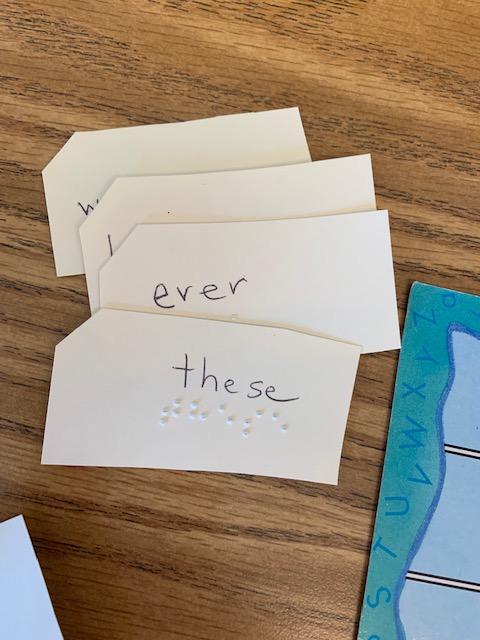 ever
these
S T U V W X Y Z